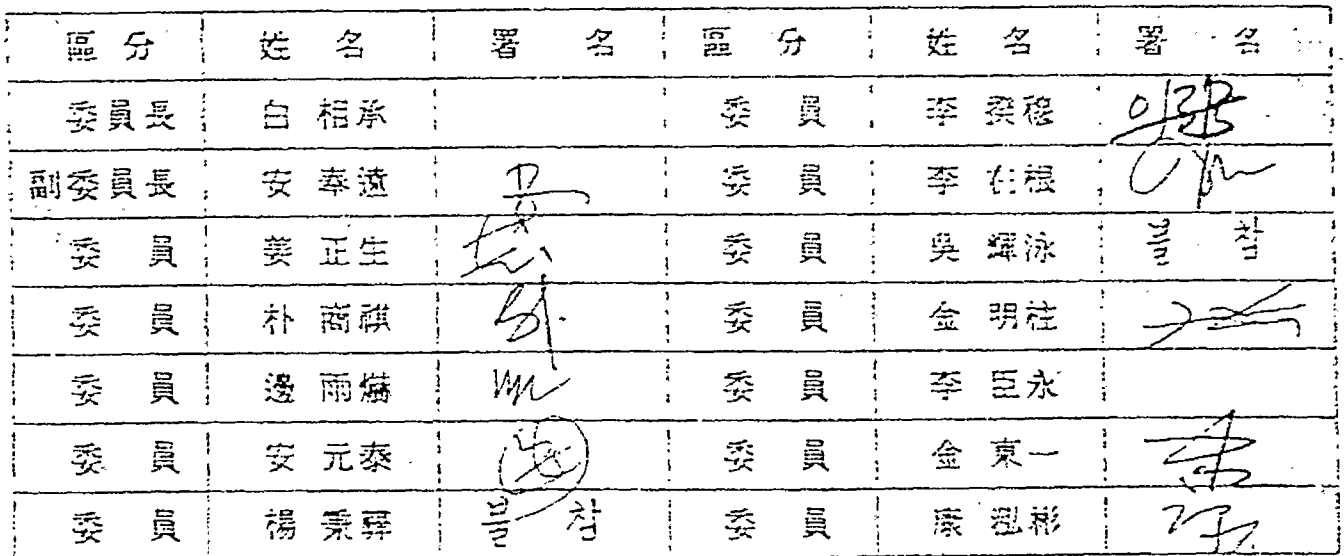 區 分 姓 名 署 名 區 分 姓 名 署 名
委員長 白 相承 委 員 李
副委員長 安 奉遠 委 員 李 在根
委 員 姜 正生 委 員 吳 輝泳 불 참
委 員 朴 商祺 委 員 金 明柱
委 員 邊 雨 委 員 李 臣永
委 員 安 元泰 委 員 金 東一
委 員 楊 秉彛 불 참 委 員 康 泓彬